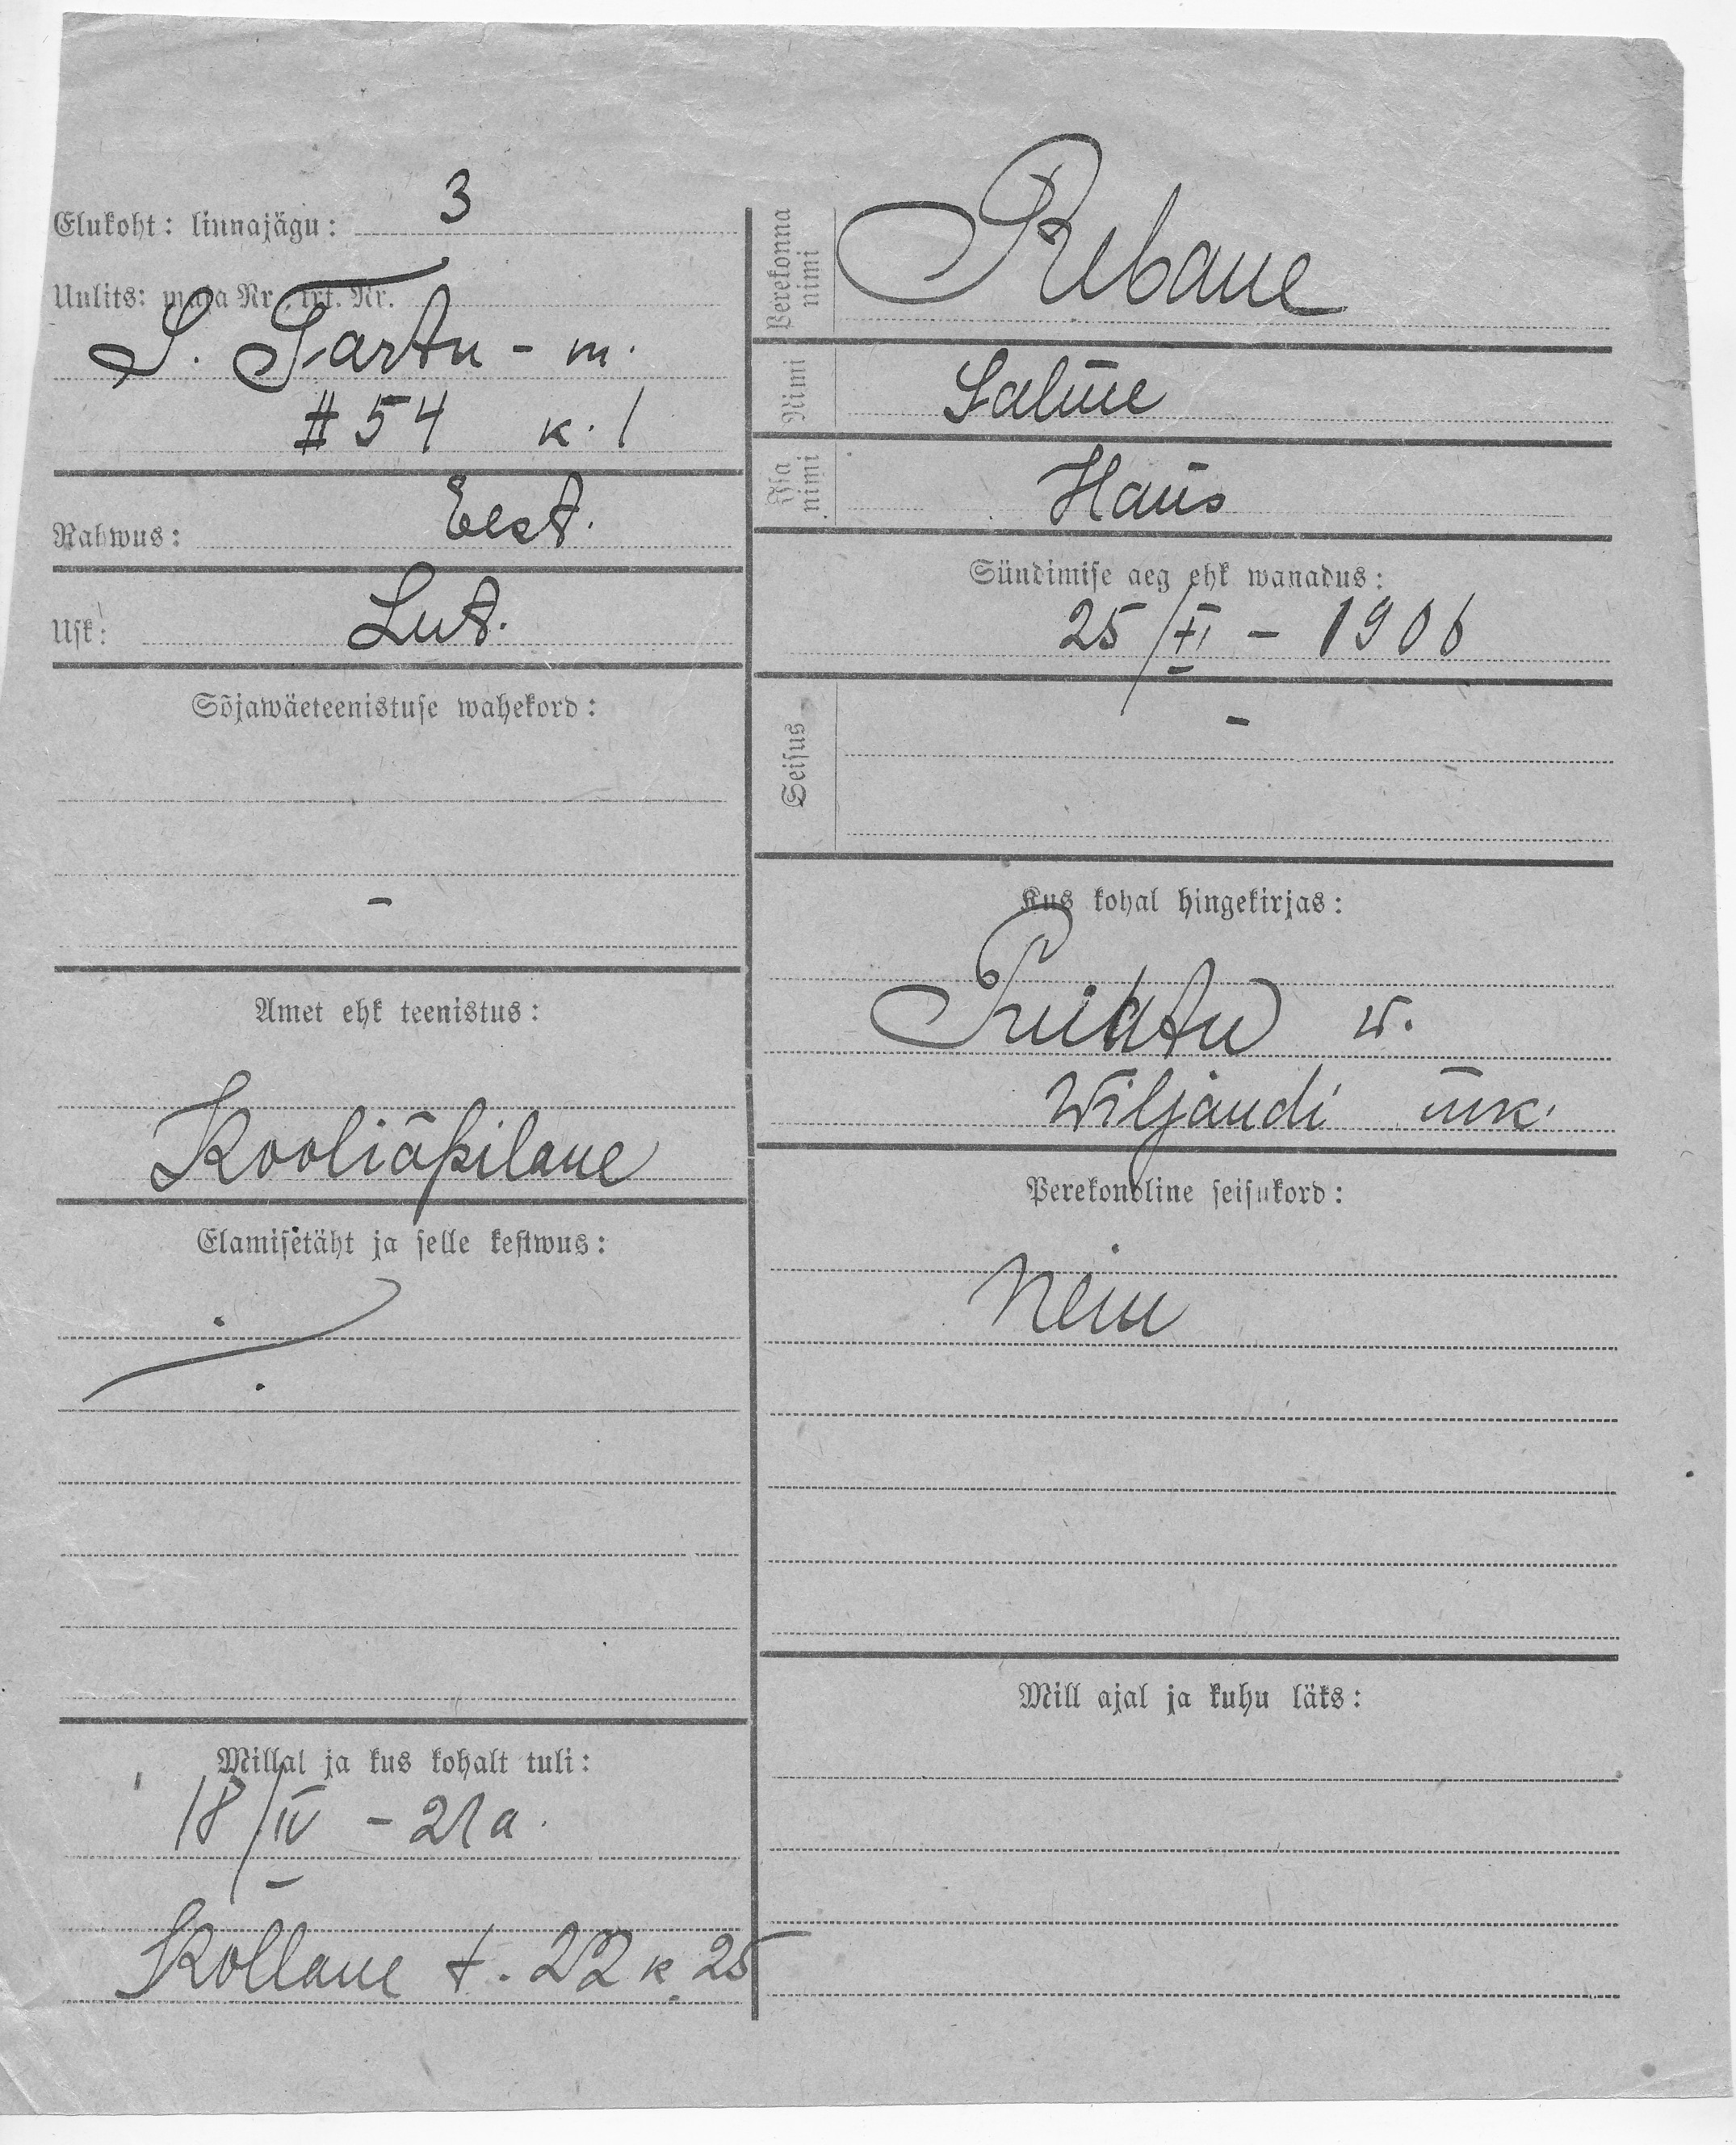 Elukoht: linnajägu: 3
Uulits: maja Nr., krt. Nr.
S. Tartu - m.
# 54 k. 1
Rahwus: Eest.
Usk: Lut.
Sõjawäeteenistuse wahekord:
-
Amet ehk teenistus:
Kooliõpilane
Elamisetäht ja selle kestwus:
Millal ja kus kohalt tuli:
18/IV - 21 a.
Kollane t. 22 k 25
Perekonna nimi Rebane
Nimi Salme
Isa nimi Hans
Sündimise aeg ehk wanadus:
25/XI - 1906
Seisus -
Kus kohal hingekirjas:
w.
Wiljandi mk.
Perekondline seisukord:
Neiu
Mill ajal ja kuhu läks: